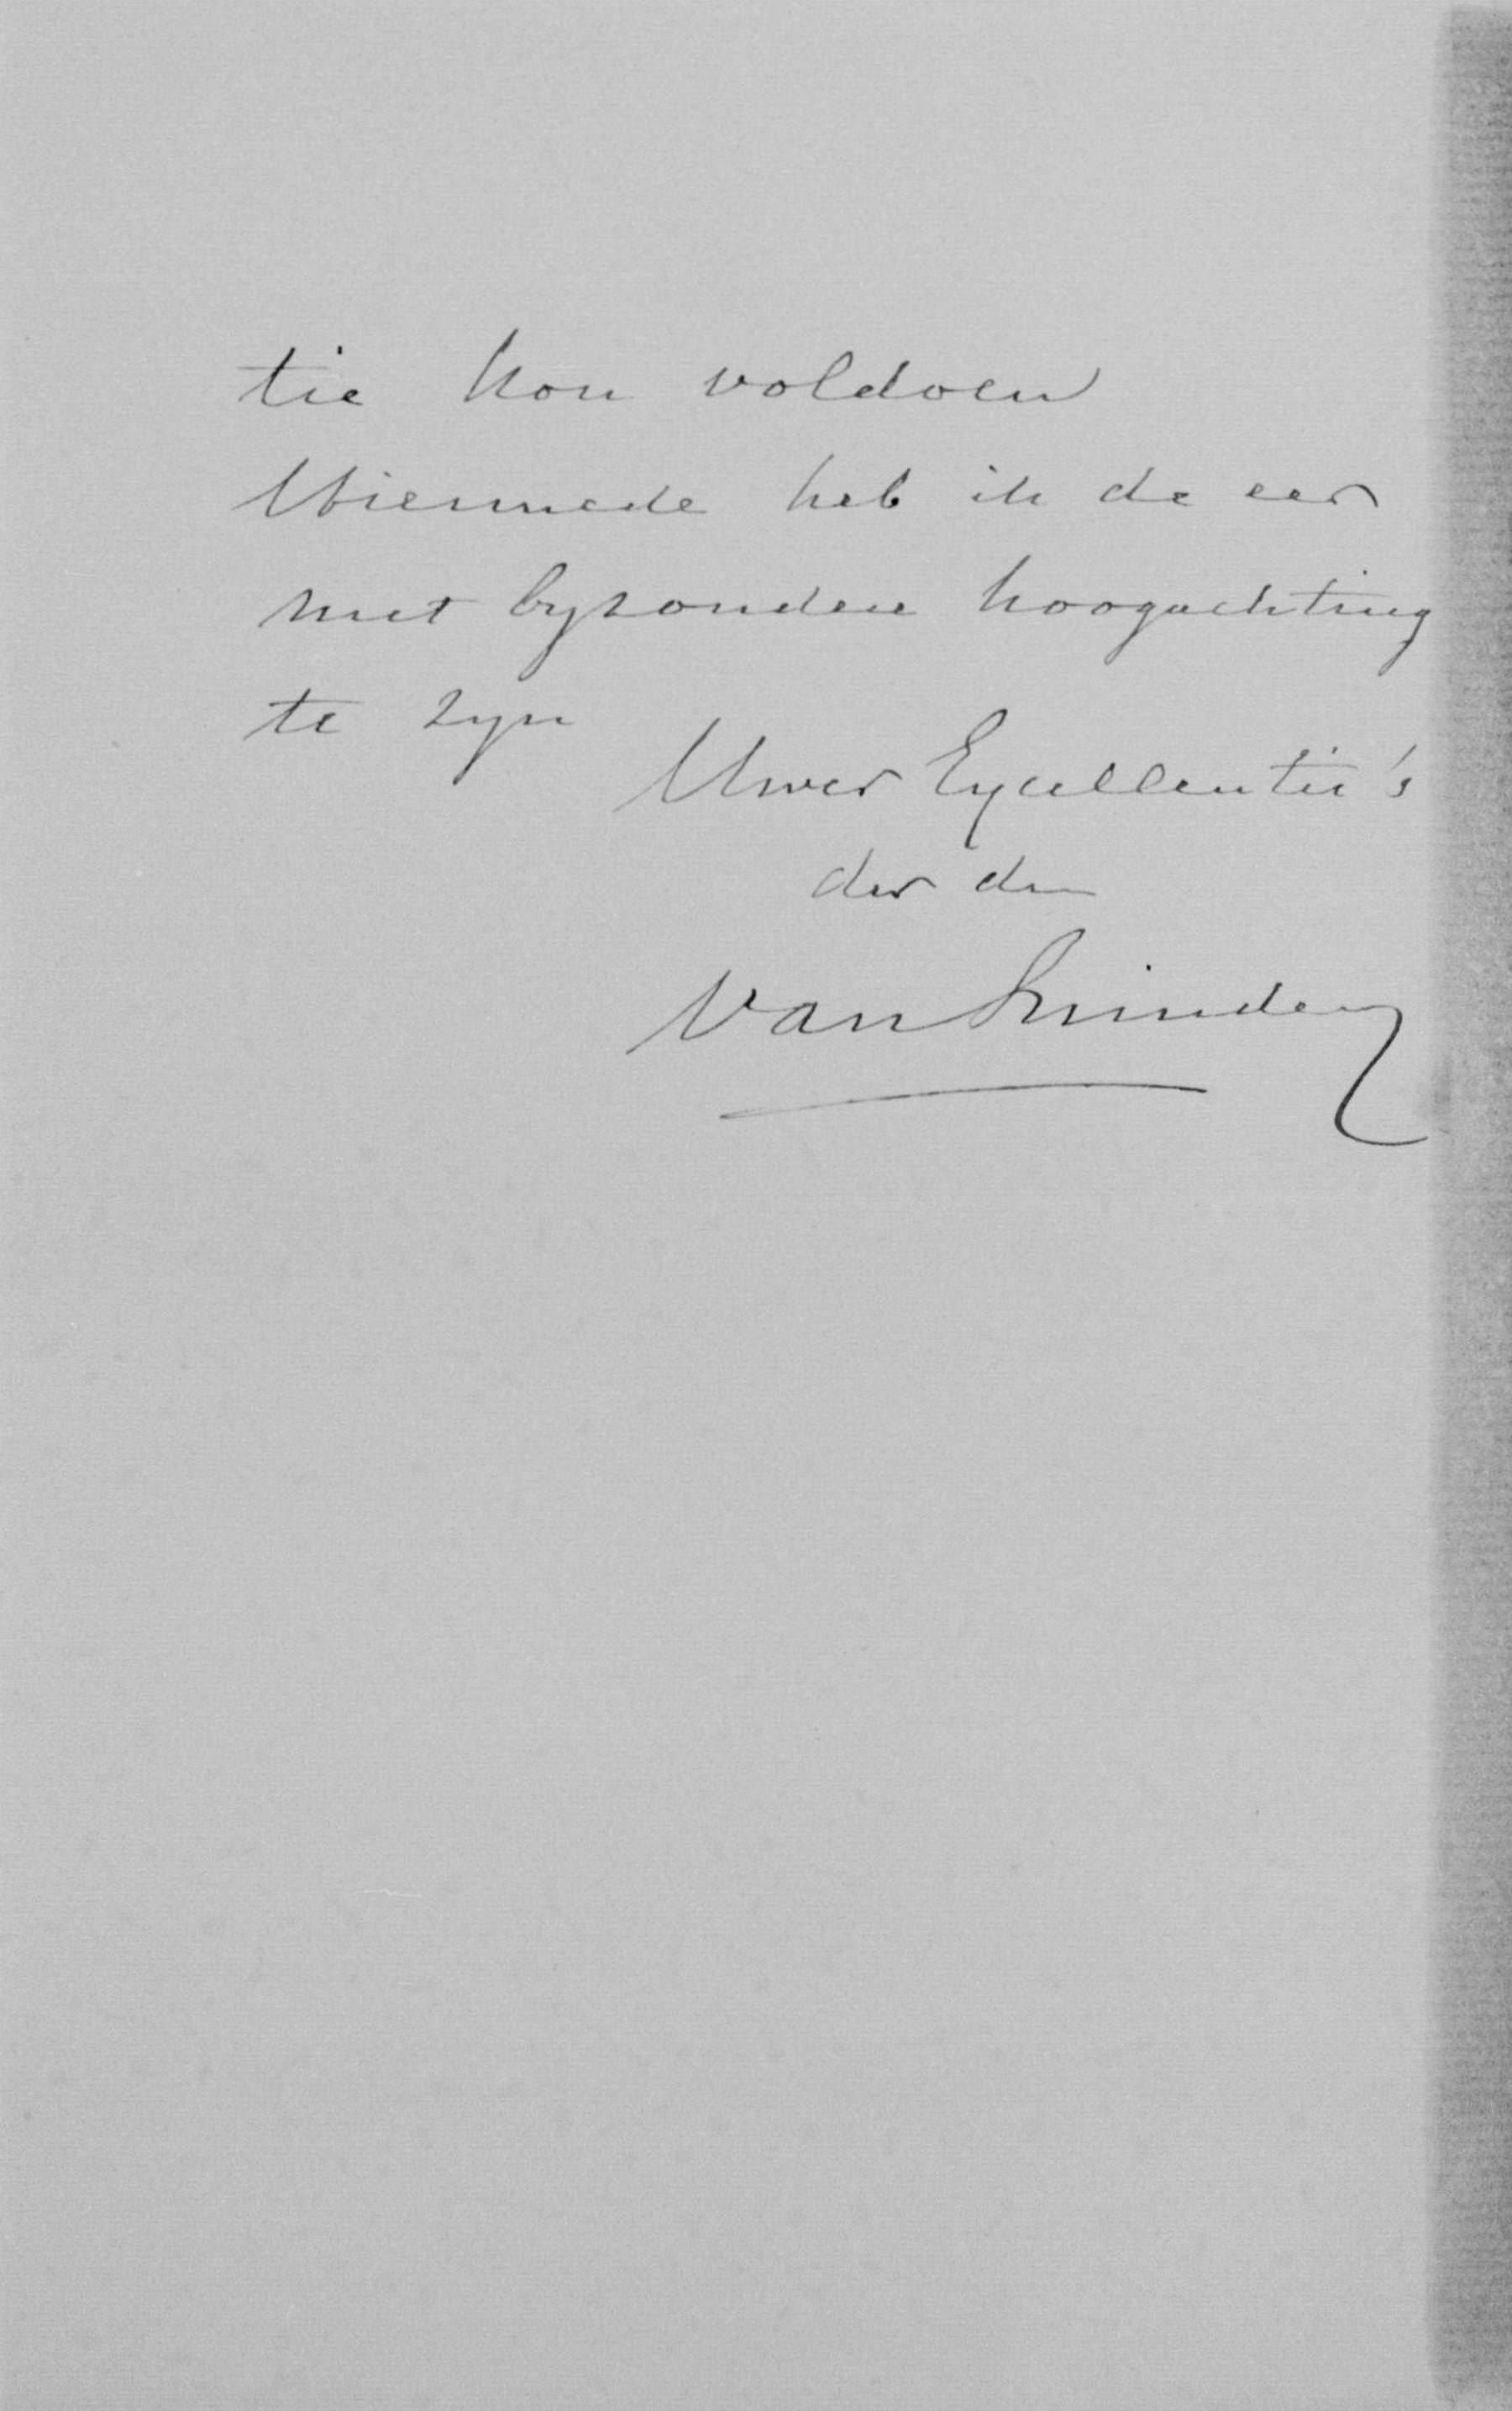 tie kon voldoen
Hiermede heb ik de eer
met byzondere hoogachting
te zyn
Uwer Excellentie's
dw dn
van Lynden